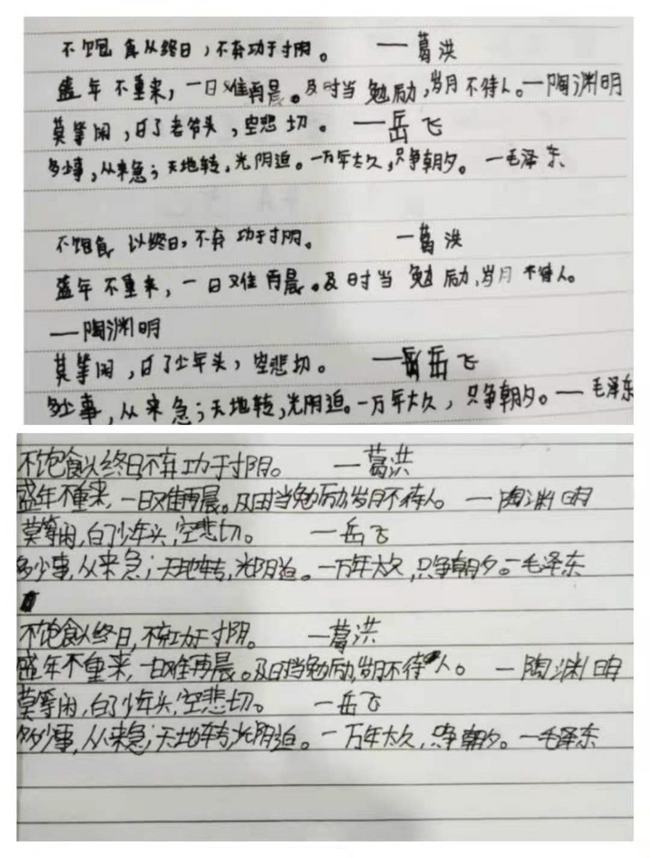 不饱食以终日,不弃功于寸阴。 ——葛洪
盛年不重来,一日难再晨。及时当勉励,岁月不待人。—陶渊明
莫等闲,白了老爷头,空悲切。 ——岳飞
多少事,从来急;天地转,光阴迫。一万年太久,只争朝夕。 —毛泽东
不饱食 以终日,不弃功于寸阴。 —葛洪
盛年不重来,一日难再晨。及时当勉励,岁月不待人。
——陶渊明
莫等闲,白了少年头,空悲切。 ——岳飞
多少事,从来急;天地转,光阴迫。一万年太久,只争朝夕。——毛泽东
不饱食以终日不弃功于寸阴。 —葛洪
盛年不重来,一日难再晨。及时当勉励岁月不待人。 —陶渊明
莫等闲,白了少年头,空悲切。 —岳飞
多少事,从来急;天地转,光阴迫。一万年太久,只争朝夕。—毛泽东
不饱食以终日,不弃功于寸阴。 —葛洪
盛年不重来,一日难再晨。及时当勉励,岁月不待人。 —陶渊明
莫等闲,白了少年头,空悲切。 —岳飞
多少事,从来急;天地转光阴迫。一万年太久,只争朝夕。—毛泽东